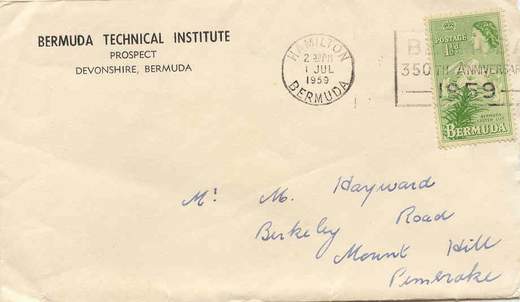 BERMUDA TECHNICAL INSTITUTE
PROSPECT
DEVONSHIRE, BERMUDA
HAMILTON
1 JUL
1959
BERMUDA
350TH ANNIVERSAR
1959
POSTAGE
BERMUDA
EASTER LILY
BERMUDA
Mr M. Hayward
Berkeley Road
Mount Hill
Pembroke